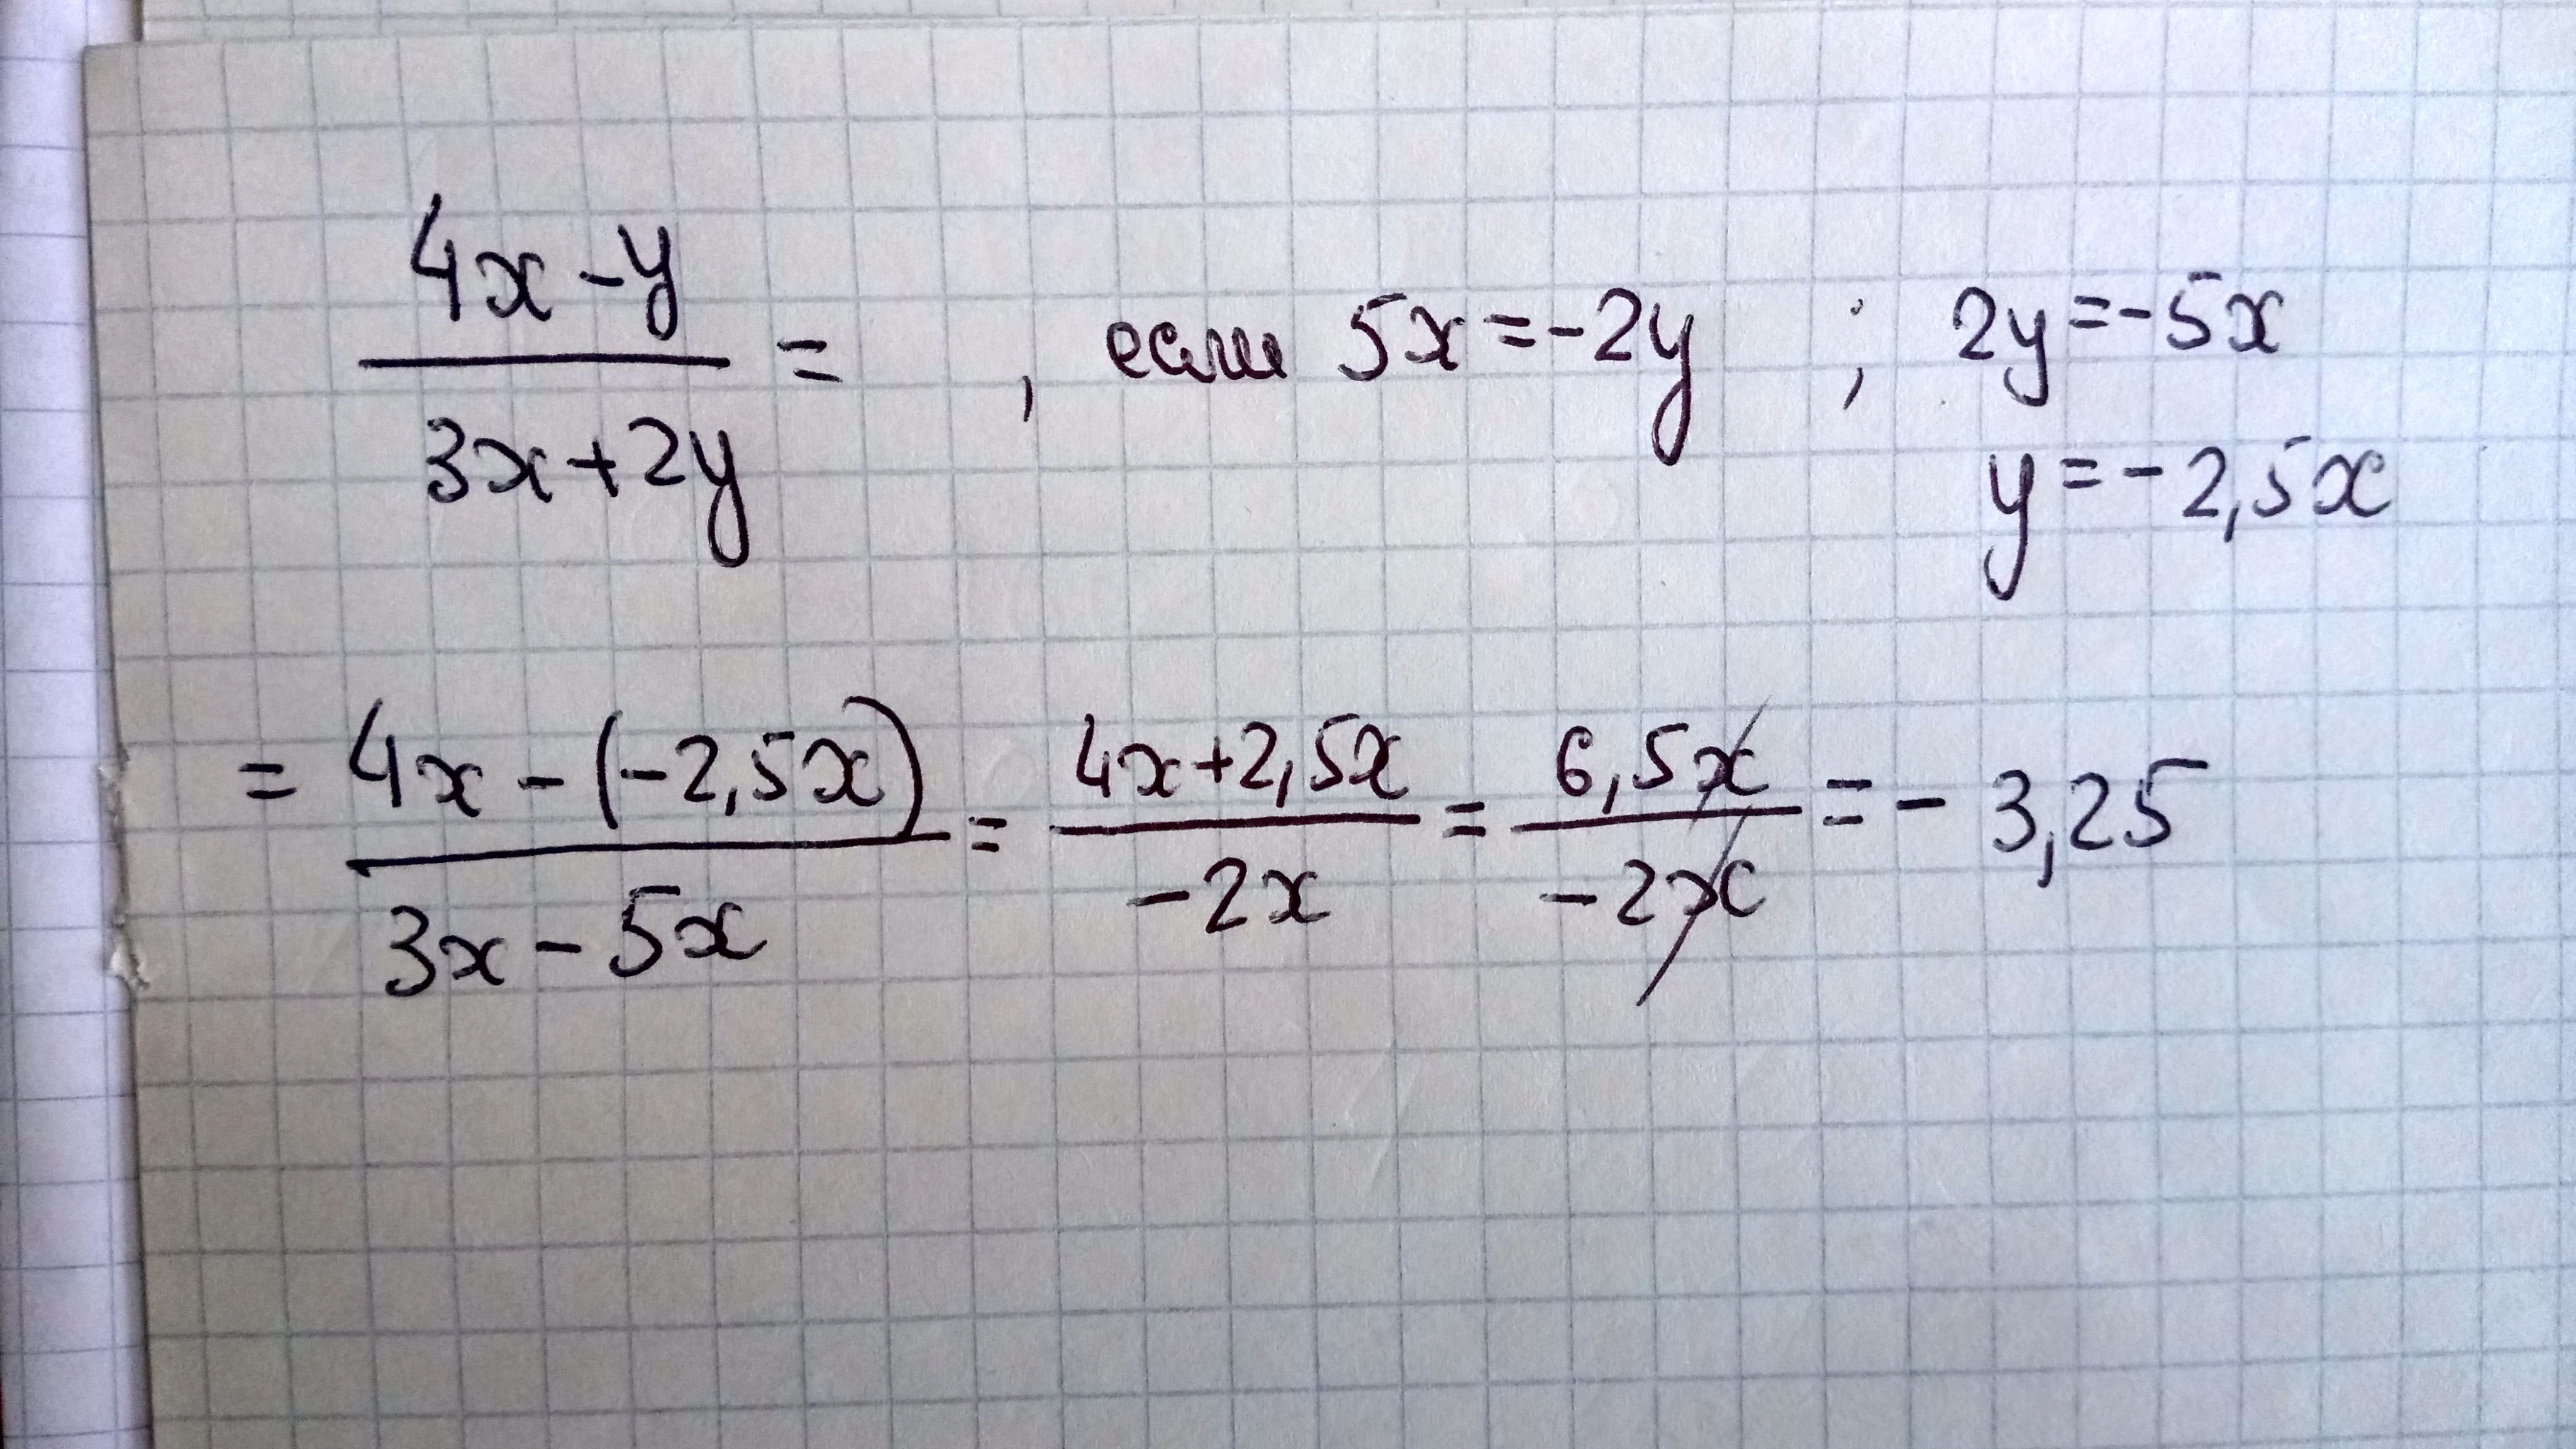 4x - y
―――― = , если 5x = -2y ; 2y = -5x
3x + 2y
y = -2,5x
= (4x - (-2,5x)) / (3x - 5x) = (4x + 2,5x) / (-2x) = (6,5x) / (-2x) = -3,25